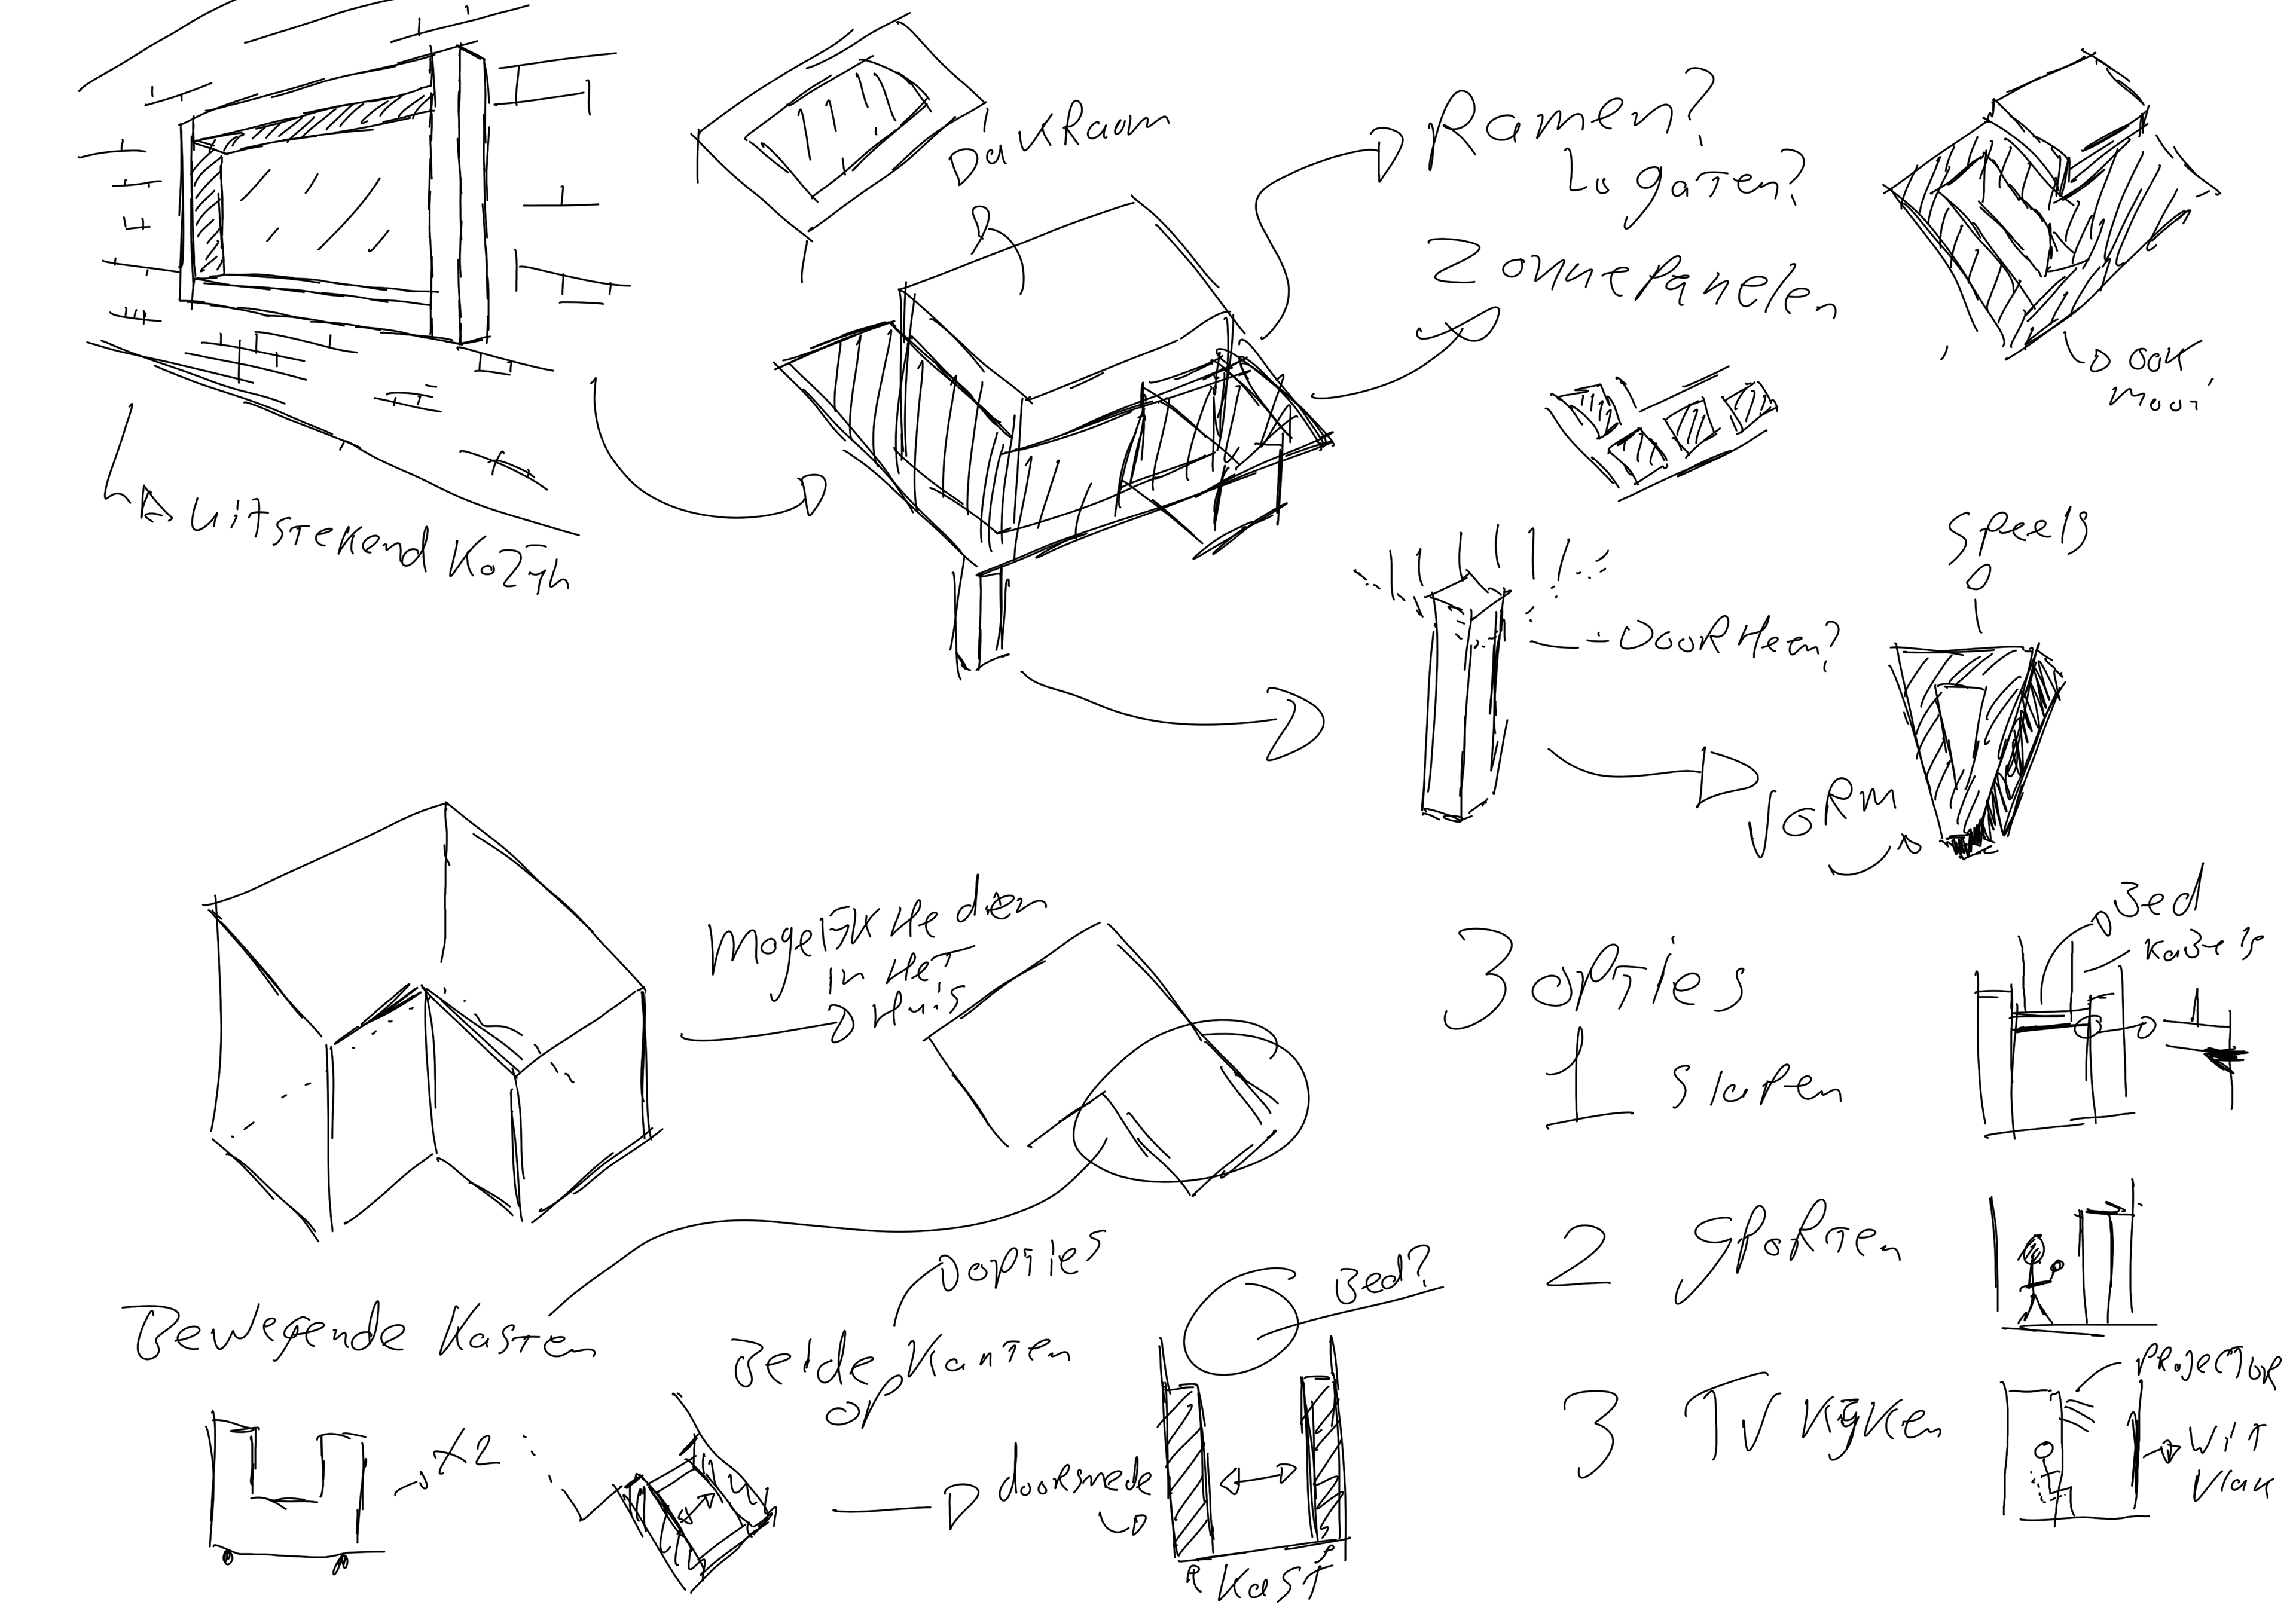 DakRaam
Ramen?
Lo gaten?
Zonnepanelen
ook
mooi
uitstekend Kozijn
speels
DOORHeen?
VORM
Mogelijkheden
in Het
Huis
3 opties
Bed
Kabels
1 slapen
2 sporten
opties
Bed?
Bewegende Kasten
Beide Kanten
op
3 TV Kijken
PROJECTOR
WIT
Vlak
x2
doorsnede
Kast